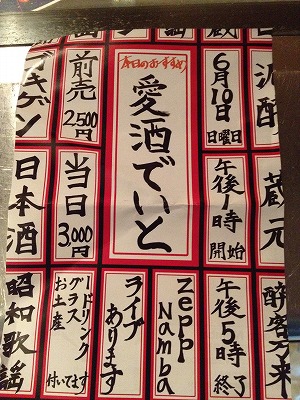 泥酔
蔵元
酔客万来
蔵
6月10日
日曜日
午後1時
開始
午後5時
終了
本日のおすすめ
愛酒でいと
Zepp
Namba
ライブ
あります
前売
2,500円
当日
3,000円
一ドリンク
グラス
お土産
付いてます
ゴキゲン
日本酒
昭和歌謡